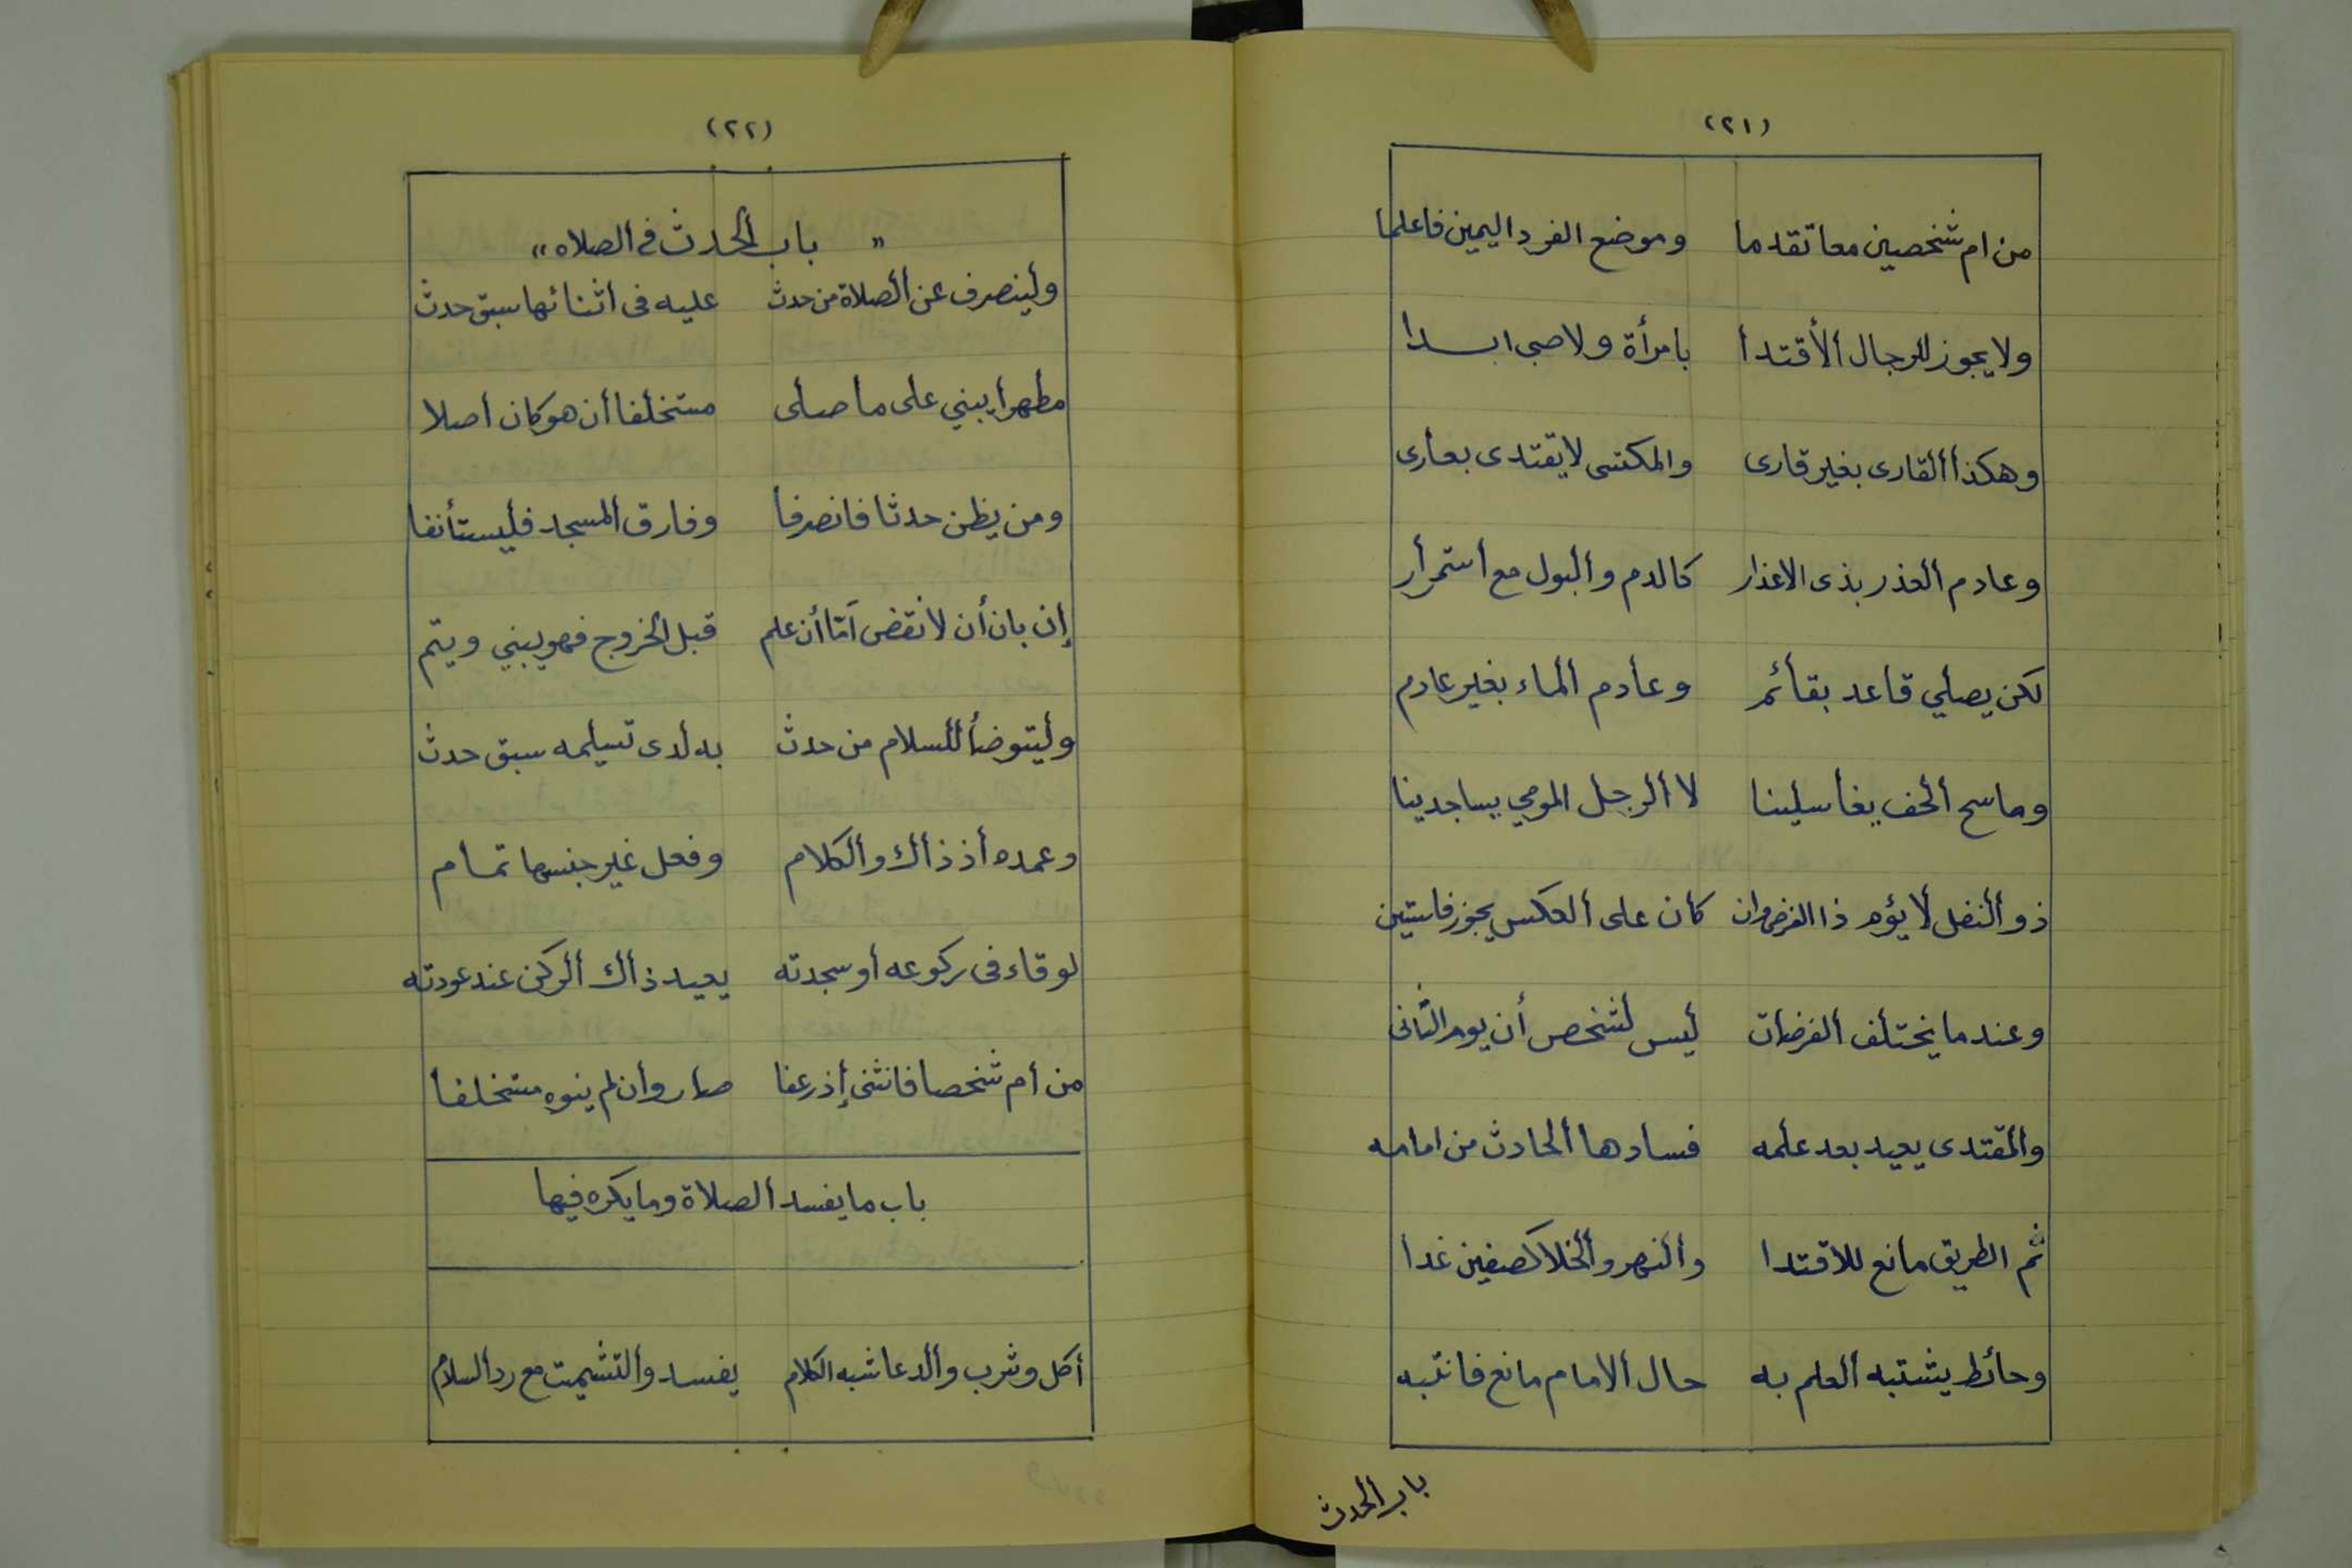 (٢١)
من ام شخصين معا تقدما وموضع الفرد اليمين فاعلما
ولا يجوز للرجال الأقتدأ بامرأة ولا صبى ابدا
وهكذا ألقارى بغير قارى والمكتسى لا يقتدى بعارى
وعادم ألعذر بذى الاعذار كالدم وألبول مع أستمرأر
لكن يصلي قاعد بقائم وعادم ألماء بغير عادم
وماسح ألخف بغاسلينا لا ألرجل المومي بساجدينا
ذو ألنفل لا يؤم ذا الفرض وان كان على ألعكس يجوز فاستبن
وعند ما يختلف ألفرضان ليس لشخص أن يوم الثانى
والمقتدى يعيد بعد علمه فسادها ألحادث من امامه
ثم الطريق مانع للاقتدا وألنهر وألخلا كصفين غدا
وحائط يشتبه ألعلم به حال ألامام مانع فانتبه
باب ألحدث
(٢٢)
" باب ألحدث فى ألصلاه "
ولينصرف عن ألصلاة من حدث عليه فى اثنائها سبق حدث
مطهرا يبني على ما صلى مستخلفا أن هو كان أصلا
ومن يظن حدثا فانصرفا وفارق ألمسجد فليستأنفا
إن بان أن لا نقض أما أن علم قبل ألخروج فهو يبني ويتم
وليتوضأ للسلام من حدث به لدى تسليمه سبق حدث
وعمده أذ ذاك وألكلام وفعل غير جنسها تمام
لو قاء فى ركوعه أو سجدته يعيد ذاك ألركن عند عودته
من أم شخصا فانثنى إذ رعفا صار وأن لم ينوه مستخلفا
باب ما يفسد ألصلاة وما يكره فيها
أكل وشرب وألدعا شبه الكلام يفسد وألتشميت مع رد ألسلام